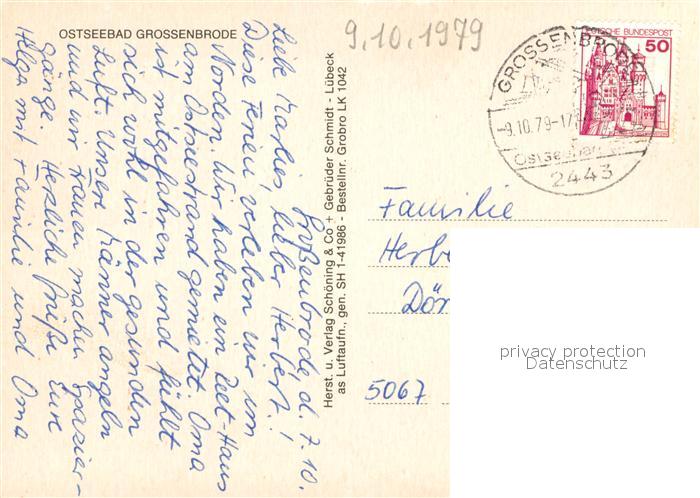 OSTSEEBAD GROSSENBRODE
Großenbrode, d. 7.10.
Liebe Marlies, lieber Herbert!
Diese Ferien verleben wir im
Norden. Wir haben ein Zelt-Haus
am Ostseestrand gemietet. Oma
ist mitgefahren und fühlt
sich wohl in der gesunden
Luft. Unsere Männer angeln
und wir Frauen machen Spazier-
gänge. Herzliche Grüße Eure
Helga mit Familie und Oma
Herst. u. Verlag Schöning & Co + Gebrüder Schmidt - Lübeck
as Luftaufn., gen. SH 1-41986 - Bestellnr. Grobro LK 1042
9.10.1979
GROSSENBRODE
-9.10.79-17
Ostseebad
2443
DEUTSCHE BUNDESPOST
50
Familie
Herbe
Dör
5067
privacy protection
Datenschutz